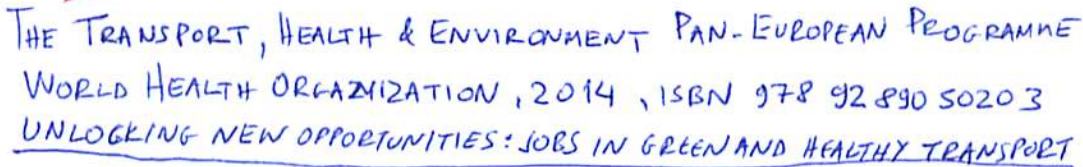 THE TRANSPORT, HEALTH & ENVIRONMENT PAN-EUROPEAN PROGRAMME
WORLD HEALTH ORGANIZATION, 2014, ISBN 978 92 890 50203
UNLOCKING NEW OPPORTUNITIES: JOBS IN GREEN AND HEALTHY TRANSPORT